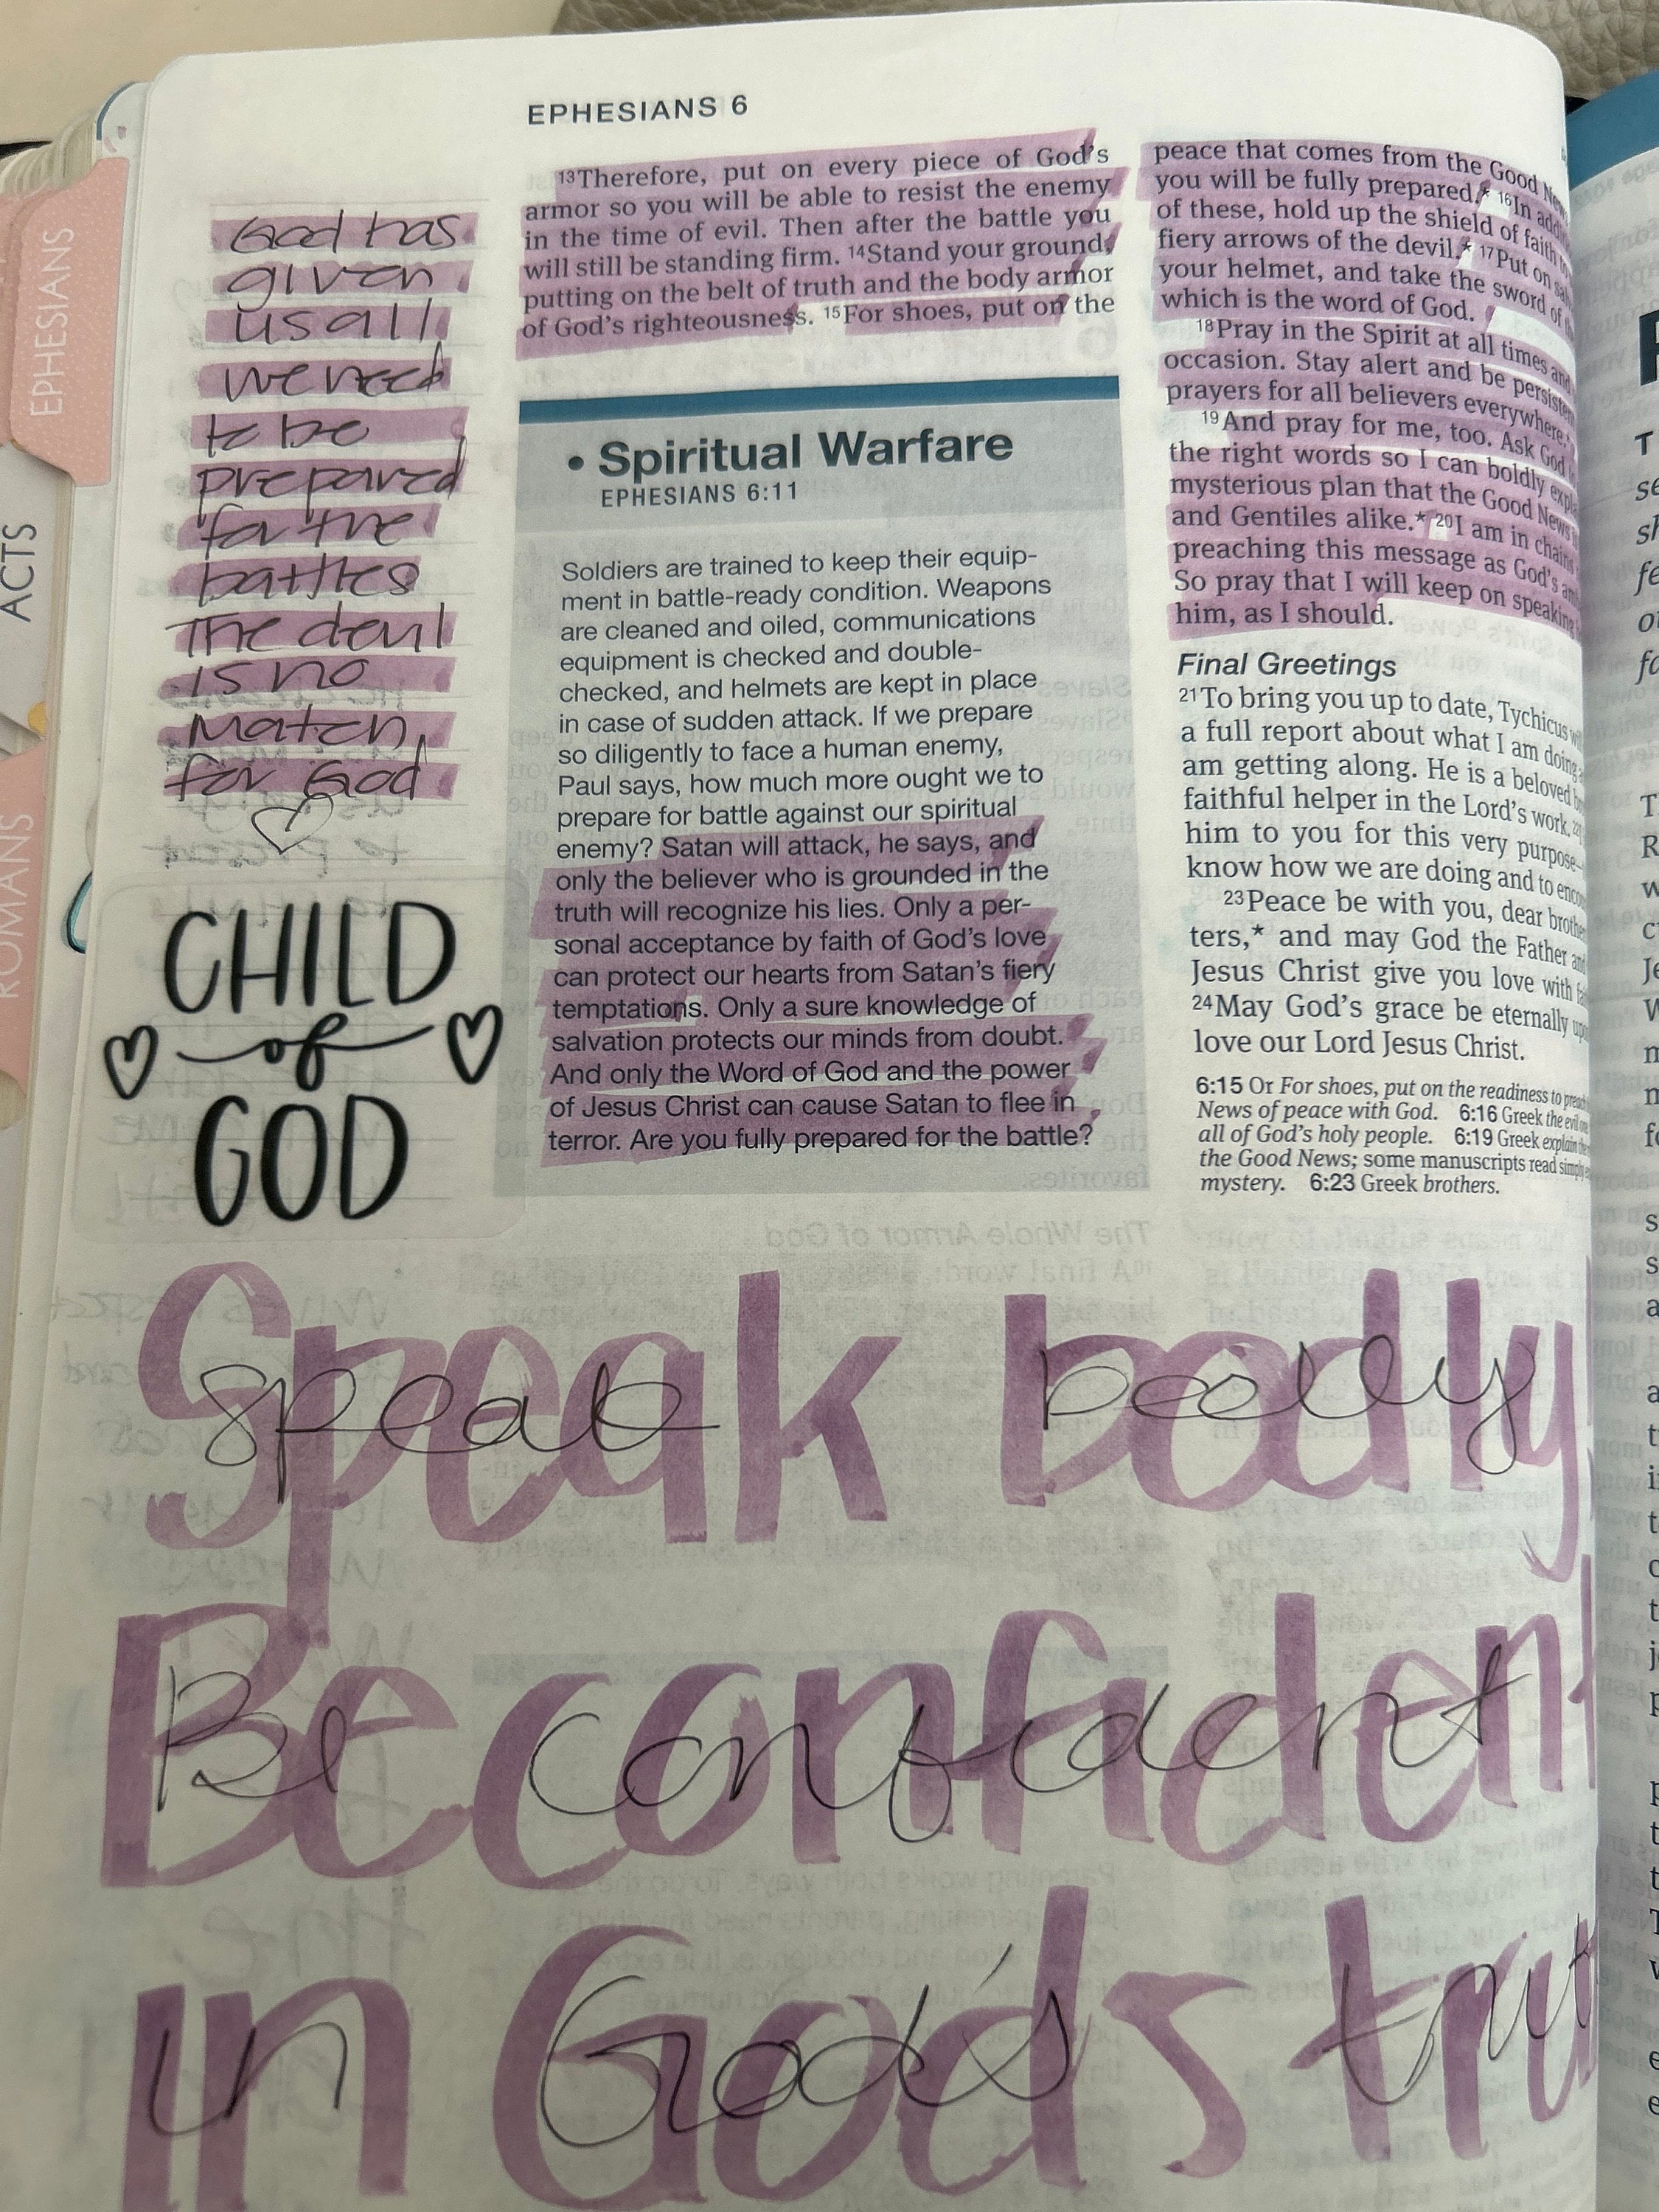 EPHESIANS 6
EPHESIANS
ACTS
ROMANS
God has
given
us all
we need
to be
prepared
for the
battles
The devil
is no
match
for God
CHILD
of
GOD
13Therefore, put on every piece of God's
armor so you will be able to resist the enemy
in the time of evil. Then after the battle you
will still be standing firm. 14Stand your ground,
putting on the belt of truth and the body armor
of God's righteousness. 15For shoes, put on the
• Spiritual Warfare
EPHESIANS 6:11
Soldiers are trained to keep their equip-
ment in battle-ready condition. Weapons
are cleaned and oiled, communications
equipment is checked and double-
checked, and helmets are kept in place
in case of sudden attack. If we prepare
so diligently to face a human enemy,
Paul says, how much more ought we to
prepare for battle against our spiritual
enemy? Satan will attack, he says, and
only the believer who is grounded in the
truth will recognize his lies. Only a per-
sonal acceptance by faith of God's love
can protect our hearts from Satan's fiery
temptations. Only a sure knowledge of
salvation protects our minds from doubt.
And only the Word of God and the power
of Jesus Christ can cause Satan to flee in
terror. Are you fully prepared for the battle?
peace that comes from the Good
you will be fully prepared.* 16In
of these, hold up the shield of faith
fiery arrows of the devil.* 17Put on
your helmet, and take the sword of
which is the word of God.
18Pray in the Spirit at all times
occasion. Stay alert and be
prayers for all believers everywhere.
19And pray for me, too. Ask God
the right words so I can boldly
mysterious plan that the Good News
and Gentiles alike.* 20I am in
preaching this message as God's
So pray that I will keep on speaking
him, as I should.
Final Greetings
21To bring you up to date, Tychicus
a full report about what I am doing
am getting along. He is a beloved
faithful helper in the Lord's work.
him to you for this very purpose—
know how we are doing and to
23Peace be with you, dear
ters,* and may God the Father
Jesus Christ give you love with
24May God's grace be eternally
love our Lord Jesus Christ.
6:15 Or For shoes, put on the readiness to
News of peace with God. 6:16 Greek the evil
all of God's holy people. 6:19 Greek explain
the Good News; some manuscripts read simply
mystery. 6:23 Greek brothers.
Speak bodly
speak bodly
Be confident
Be confident
in God's
in God's